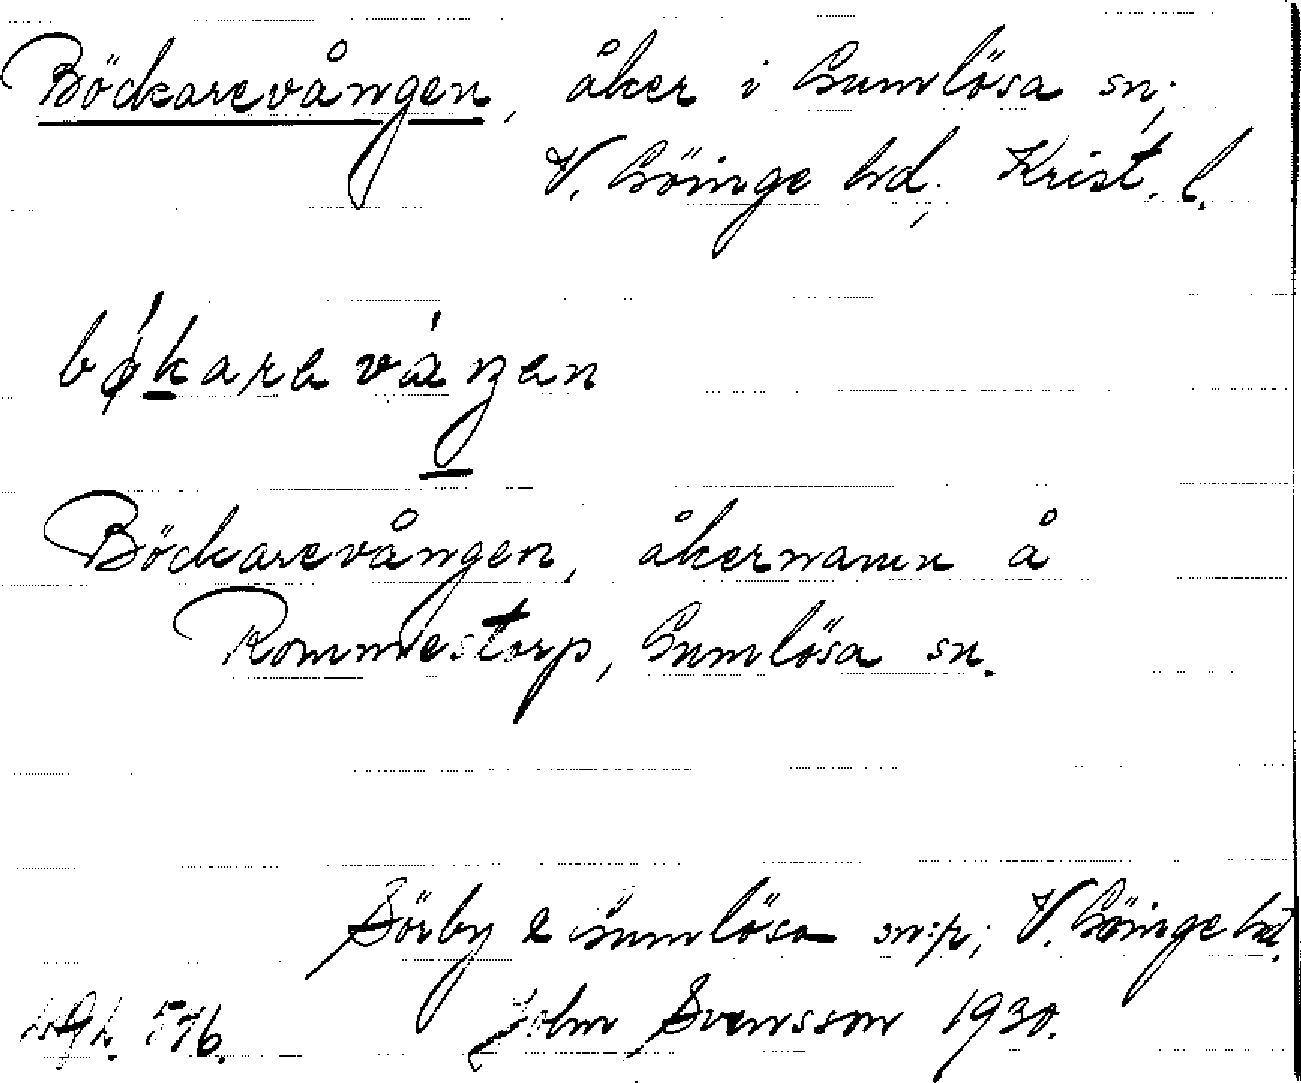 Böckarevången, åker i Gumlösa sn;
V. Göinge hd; Krist. l.
bǿkareváŋen
Böckarevången, åkernamn å
Rommestorp, Gumlösa sn.
Sörby & Gumlösa sn:r; V. Göinge hd.
576. John Svensson 1930.